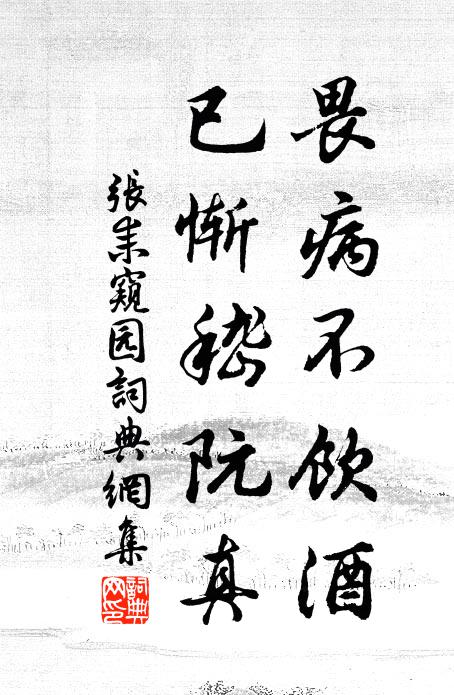 畏病不飲酒
已慚嵇阮真
張耒窺园詞典網集
詞典
网印